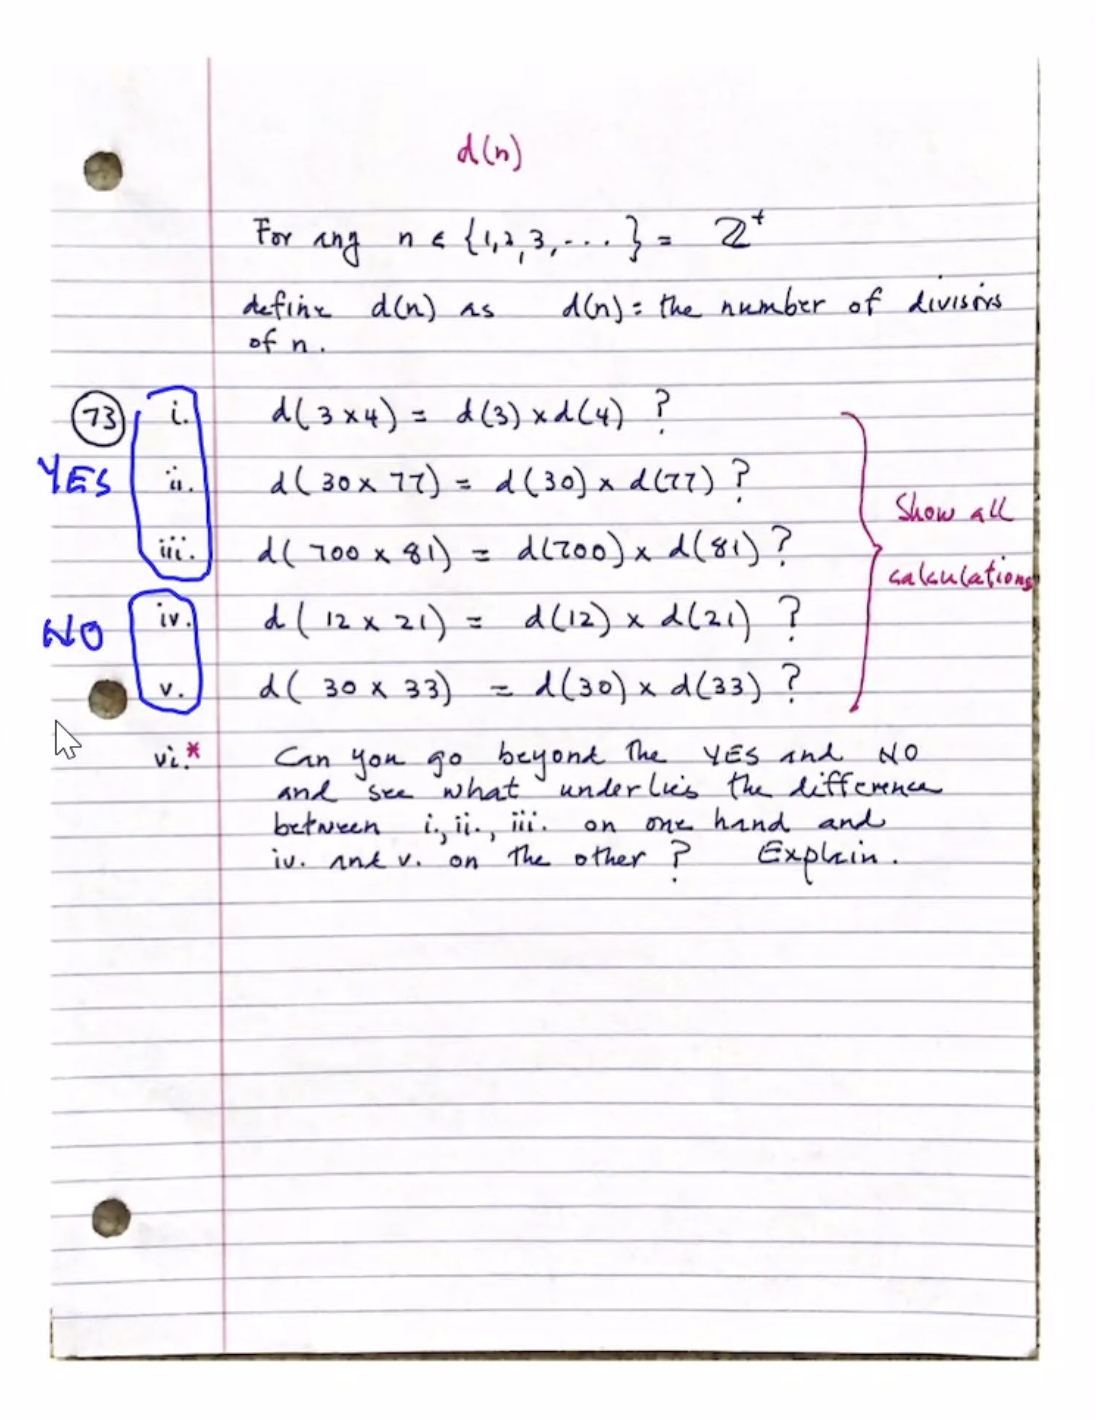 d(n)
For any n ∈ {1,2,3,...} = ℤ⁺
define d(n) as d(n) = the number of divisors
of n.
73 i. d(3×4) = d(3)×d(4) ?
YES ii. d(30×77) = d(30)×d(77) ?
iii. d(700×81) = d(700)×d(81) ?
Show all
calculations
NO iv. d(12×21) = d(12)×d(21) ?
v. d(30×33) = d(30)×d(33) ?
vi.* Can you go beyond the YES and NO
and see what underlies the difference
between i., ii., iii. on one hand and
iv. and v. on the other ? Explain.